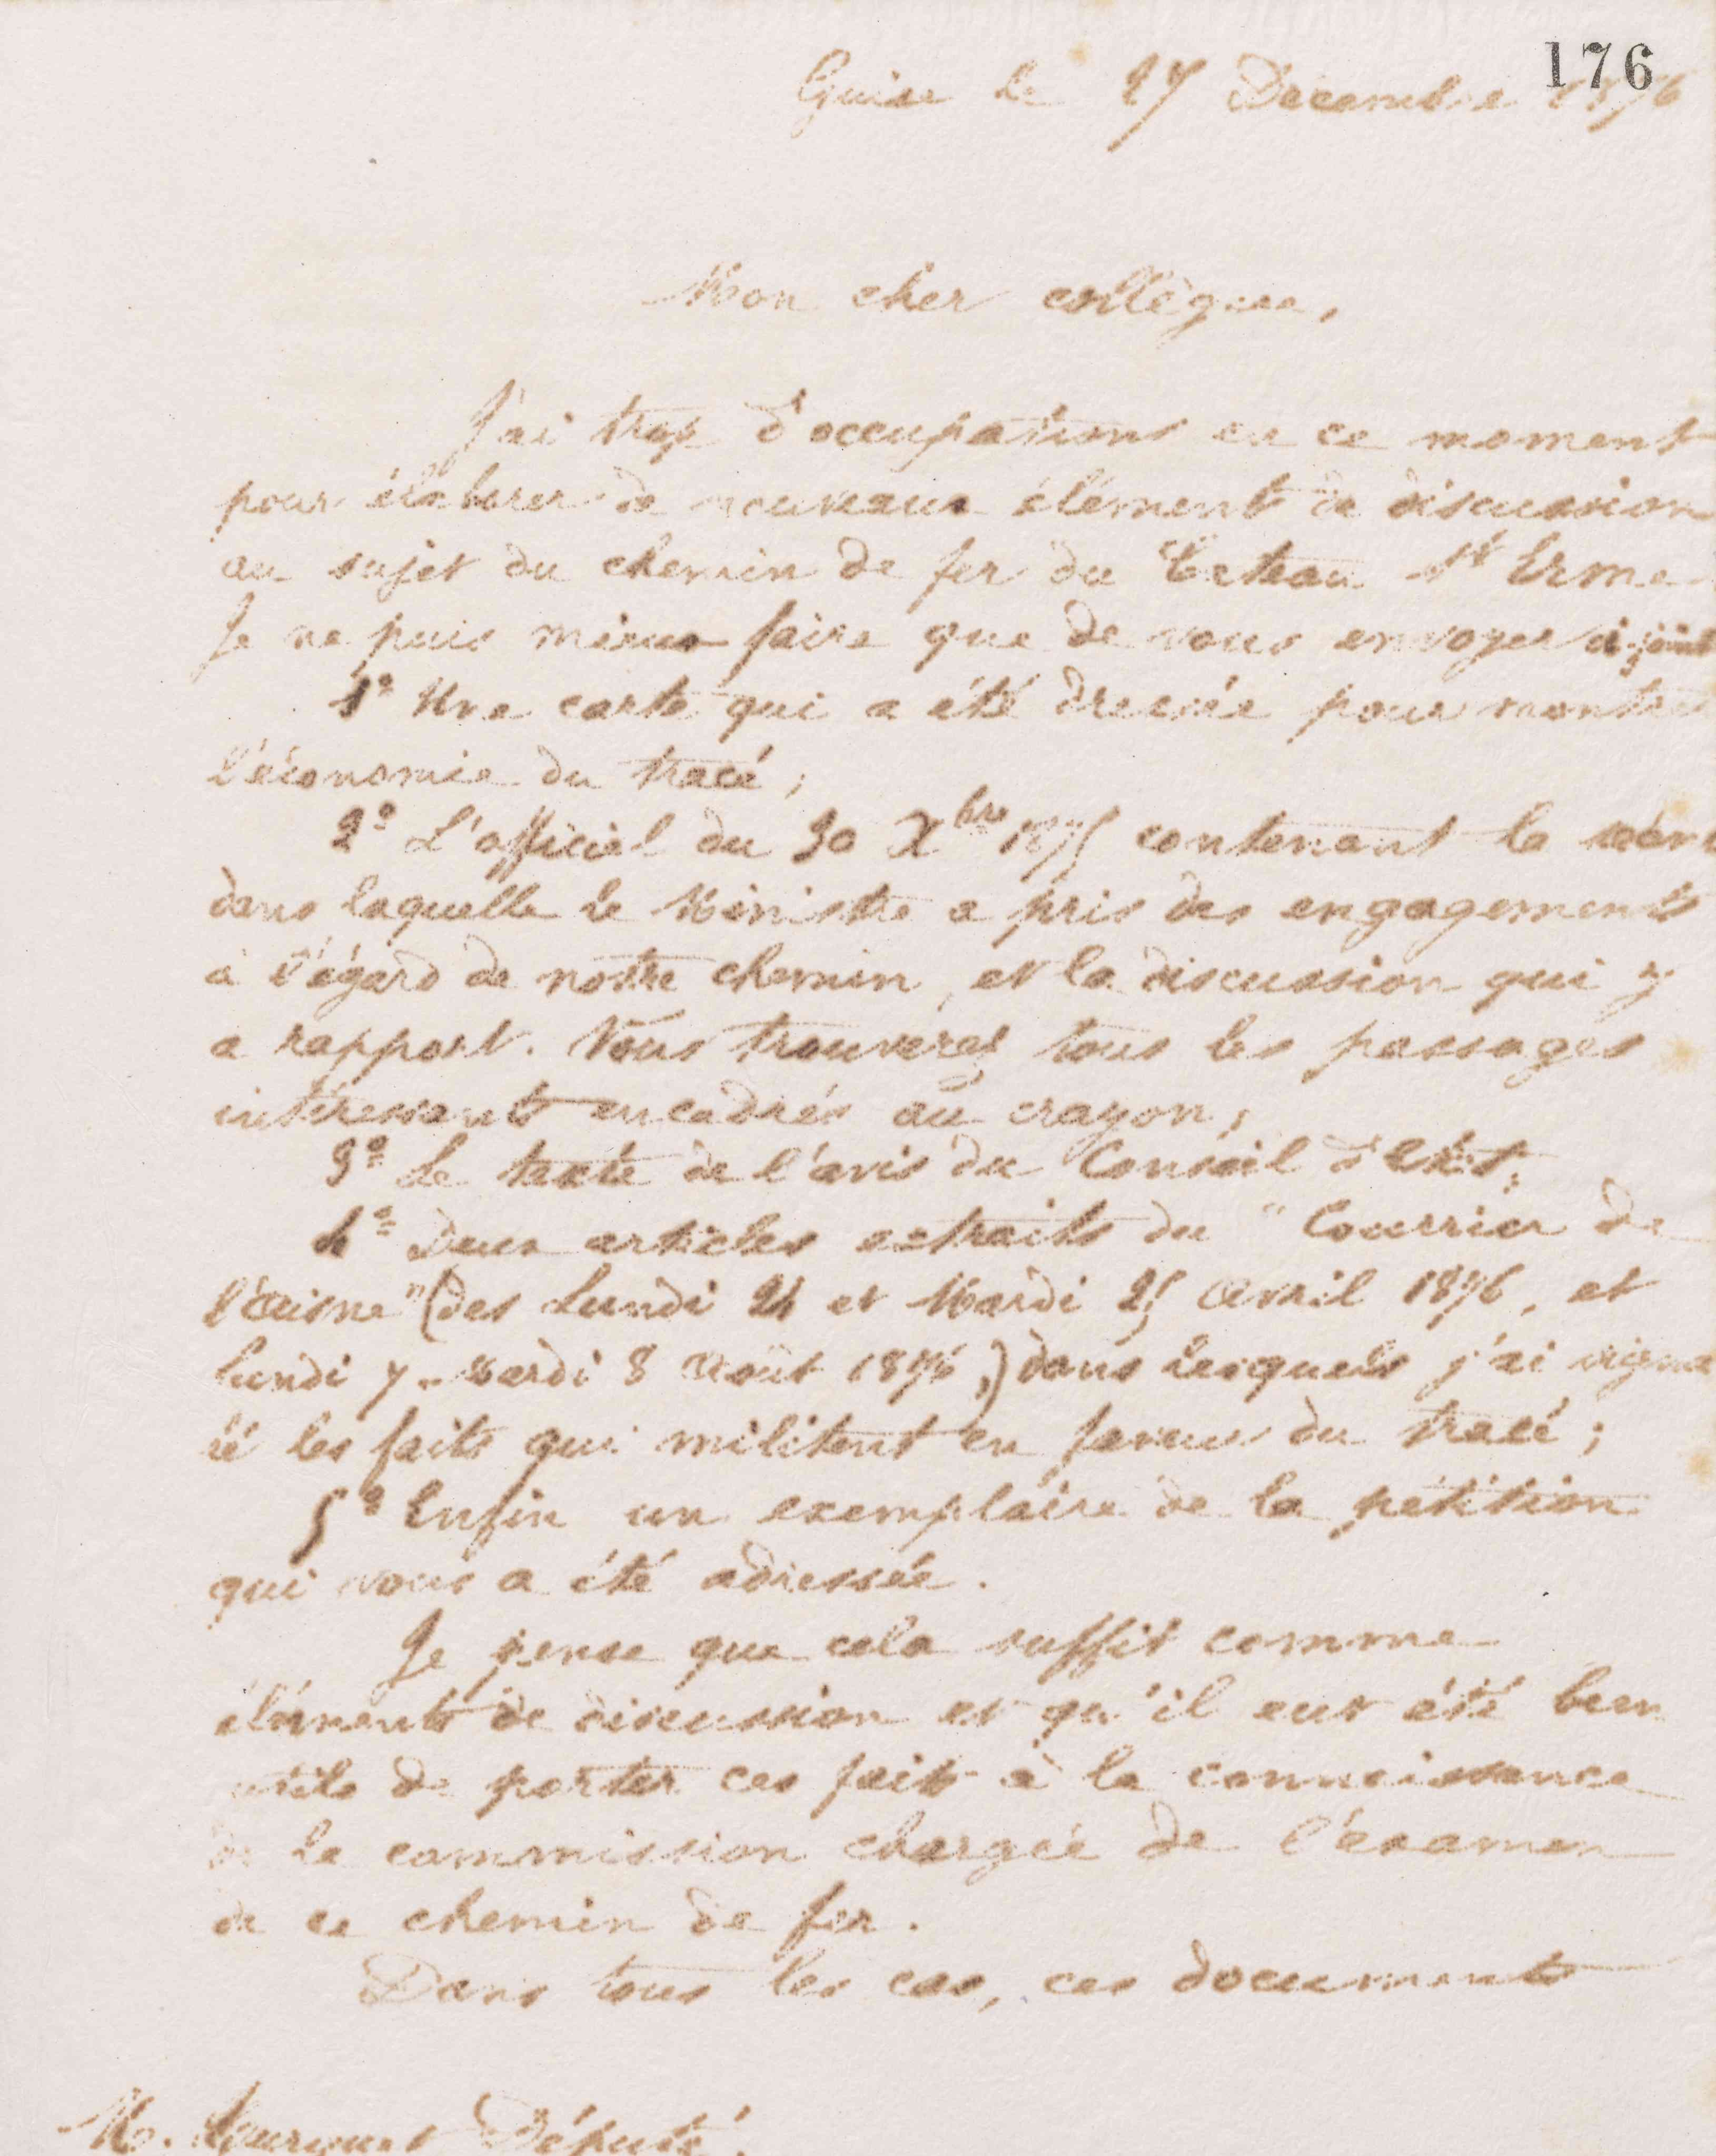 176
Guise le 27 Décembre 1876
Mon cher collègue,
J'ai trop d'occupations en ce moment
pour élaborer de nouveaux élément de discussion
au sujet du chemin de fer du Cateau St Erme
Je ne puis mieux faire que de vous envoyer ci-joint
1° Une carte qui a été dressée pour montrer
l'économie du tracé ;
2° L'officiel du 30 Xbre 1875 contenant la
dans laquelle le Ministre a pris des engagements
à l'égard de notre chemin, et la discussion qui y
a rapport. Vous trouverez tous les passages
intéressants encadrés au crayon ;
3° Le texte de l'avis du Conseil d'Etat ;
4° Deux articles extraits du "Courrier de
l'Aisne" (des Lundi 24 et Mardi 25 Avril 1876, et
Lundi 7 - Mardi 8 Août 1876,) dans lesquels j'ai signa
lé les faits qui militent en faveur du tracé ;
5° Enfin un exemplaire de la pétition
qui vous a été adressée.
Je pense que cela suffit comme
éléments de discussion et qu'il eut été bien
utile de porter ces faits à la connaissance
de la commission chargée de l'examen
de ce chemin de fer.
Dans tous les cas, ces documents
M. Député.